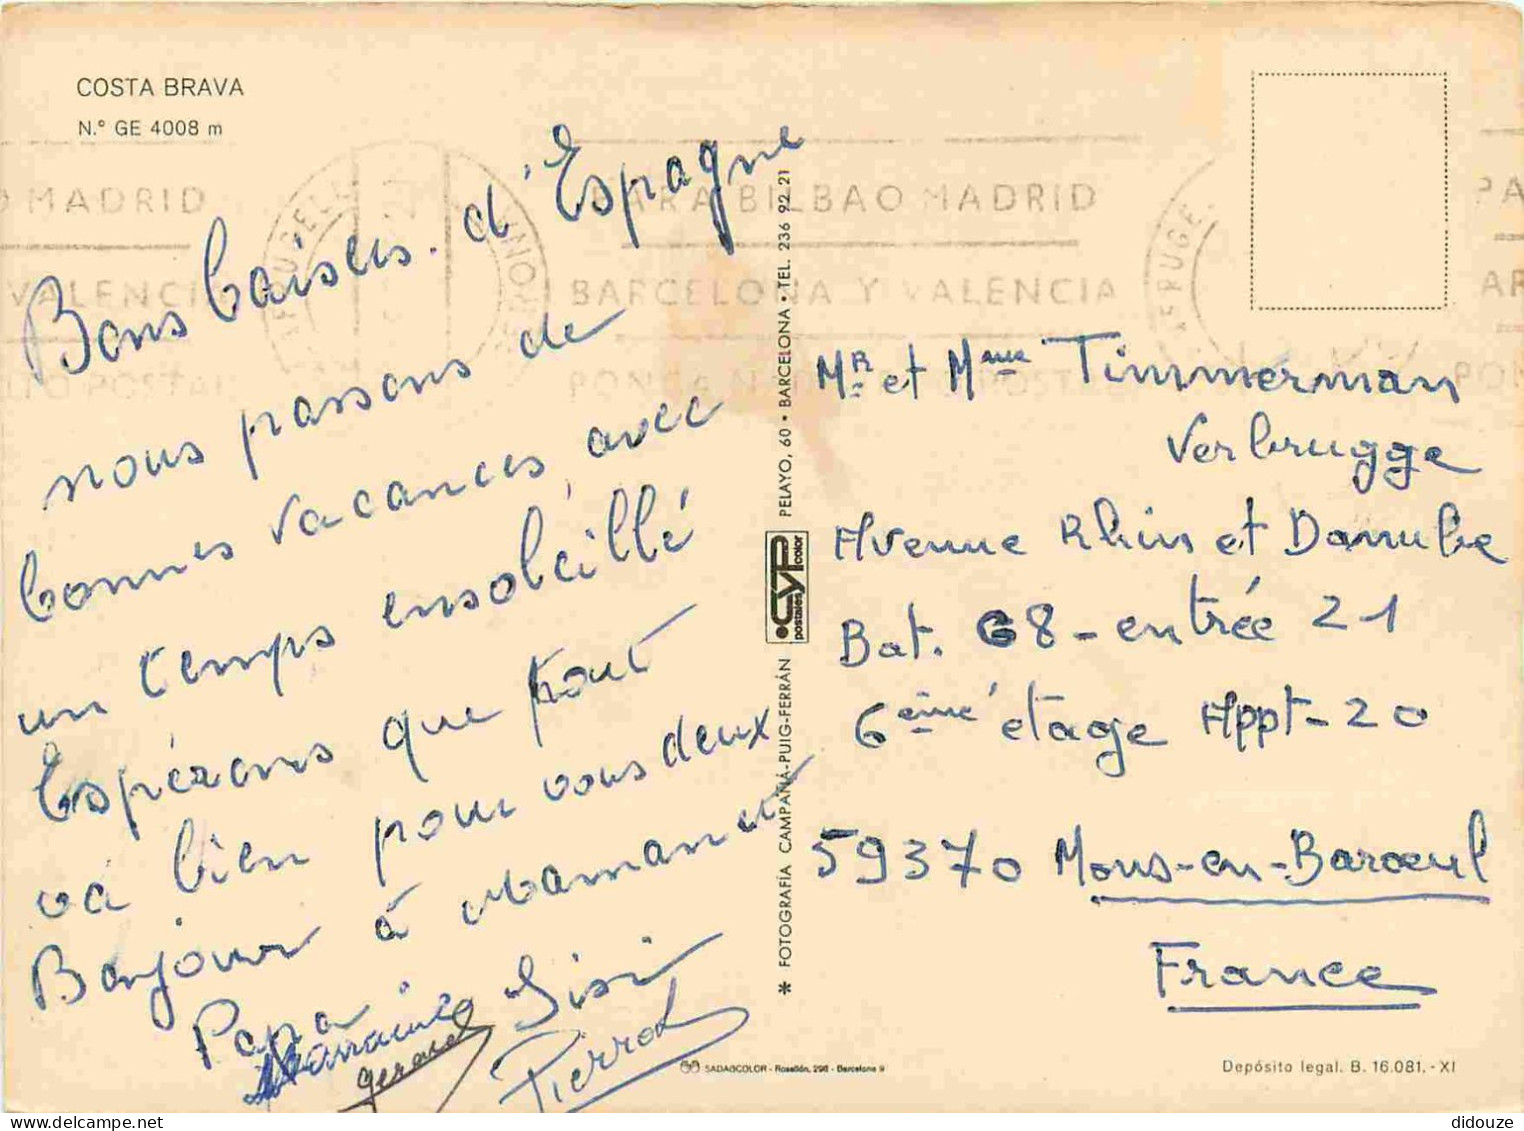 COSTA BRAVA
N.º GE 4008 m
Bons baisers d'Espagne
nous passons de
bonnes vacances, avec
un temps ensoleillé
Espérons que tout
va bien pour vous deux
Bonjour à Maman et
Papa
Marraine Sisi
gerard Pierrot
O MADRID
VALENCIA
PARA BILBAO MADRID
BARCELONA Y VALENCIA
* FOTOGRAFÍA CAMPAÑÁ-PUIG-FERRÁN
CYP color postales
PELAYO, 60 • BARCELONA • TEL. 236 92 21
Mr et Mme Timmerman
Verbrugge
Avenue Rhin et Danube
Bat. G8 - entrée 21
6ème étage Appt - 20
59370 Mons-en-Baroeul
France
SADAGCOLOR - Rosellón, 298 - Barcelona 9
Depósito legal. B. 16.081.-XI
didouze